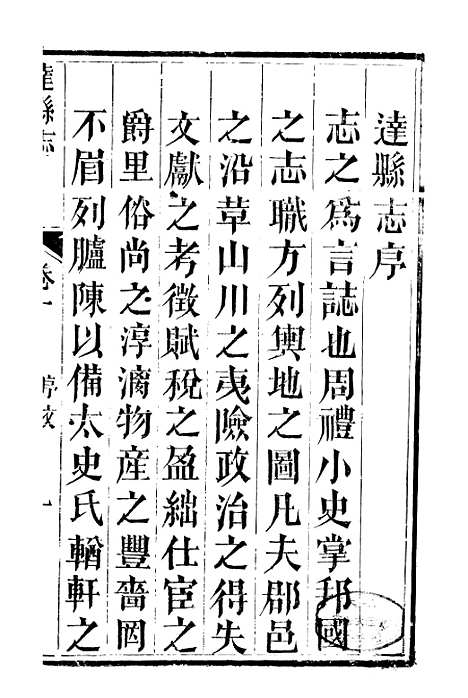 達縣志序
志之爲言誌也周禮小史掌邦國
之志職方列輿地之圖凡夫郡邑
之沿革山川之夷險政治之得失
文獻之考徵賦稅之盈絀仕宦之
爵里俗尚之淳漓物産之豐嗇罔
不眉列臚陳以備太史氏輶軒之
達縣志
卷一
序
一